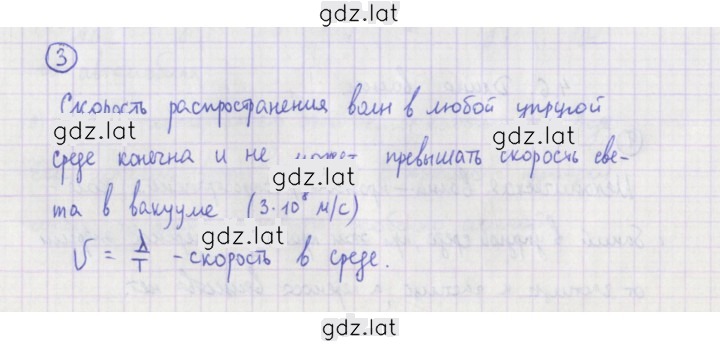 gdz.lat
3
Скорость распространения волн в любой упругой
gdz.lat
gdz.lat
среде конечна и не может превышать скорость све-
gdz.lat
та в вакууме (3·10⁸ м/с)
gdz.lat
V = λ/T - скорость в среде.
gdz.lat